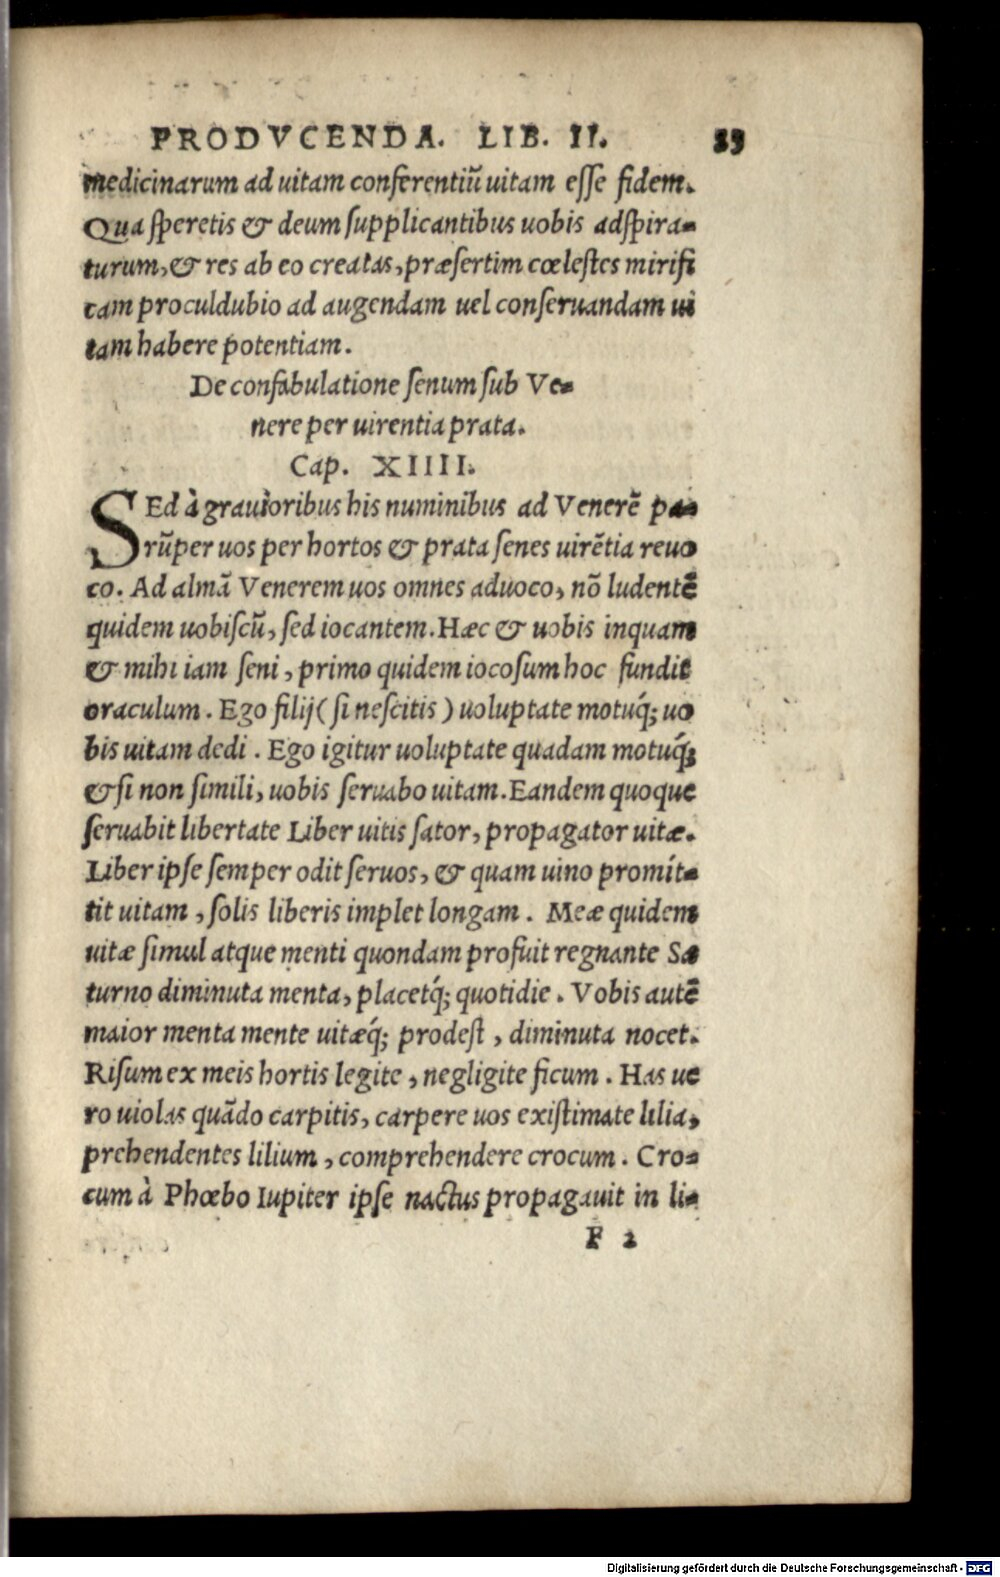 PRODVCENDA. LIB. II. 83
medicinarum ad uitam conferentiũ uitam esse fidem.
Qua speretis & deum supplicantibus uobis adspira-
turum, & res ab eo creatas, præsertim cœlestes mirifi
cam proculdubio ad augendam uel conseruandam ui
tam habere potentiam.
De confabulatione senum sub Ve-
nere per uirentia prata.
Cap. XIIII.
SEd à grauioribus his numinibus ad Venerẽ pa-
rũper uos per hortos & prata senes uirẽtia reuo
co. Ad almã Venerem uos omnes aduoco, nõ ludentẽ
quidem uobiscũ, sed iocantem. Hæc & uobis inquam
& mihi iam seni, primo quidem iocosum hoc fundit
oraculum. Ego filij (si nescitis) uoluptate motuq́; uo
bis uitam dedi. Ego igitur uoluptate quadam motuq́;
& si non simili, uobis seruabo uitam. Eandem quoque
seruabit libertate Liber uitis sator, propagator uitæ.
Liber ipse semper odit seruos, & quam uino promit-
tit uitam, solis liberis implet longam. Meæ quidem
uitæ simul atque menti quondam profuit regnante Sa
turno diminuta menta, placetq́; quotidie. Vobis autẽ
maior menta mente uitæq́; prodest, diminuta nocet.
Risum ex meis hortis legite, negligite ficum. Has ue
ro uiolas quãdo carpitis, carpere uos existimate lilia,
prehendentes lilium, comprehendere crocum. Cro-
cum à Phœbo Iupiter ipse nactus propagauit in li-
F 2
Digitalisierung gefördert durch die Deutsche Forschungsgemeinschaft - DFG